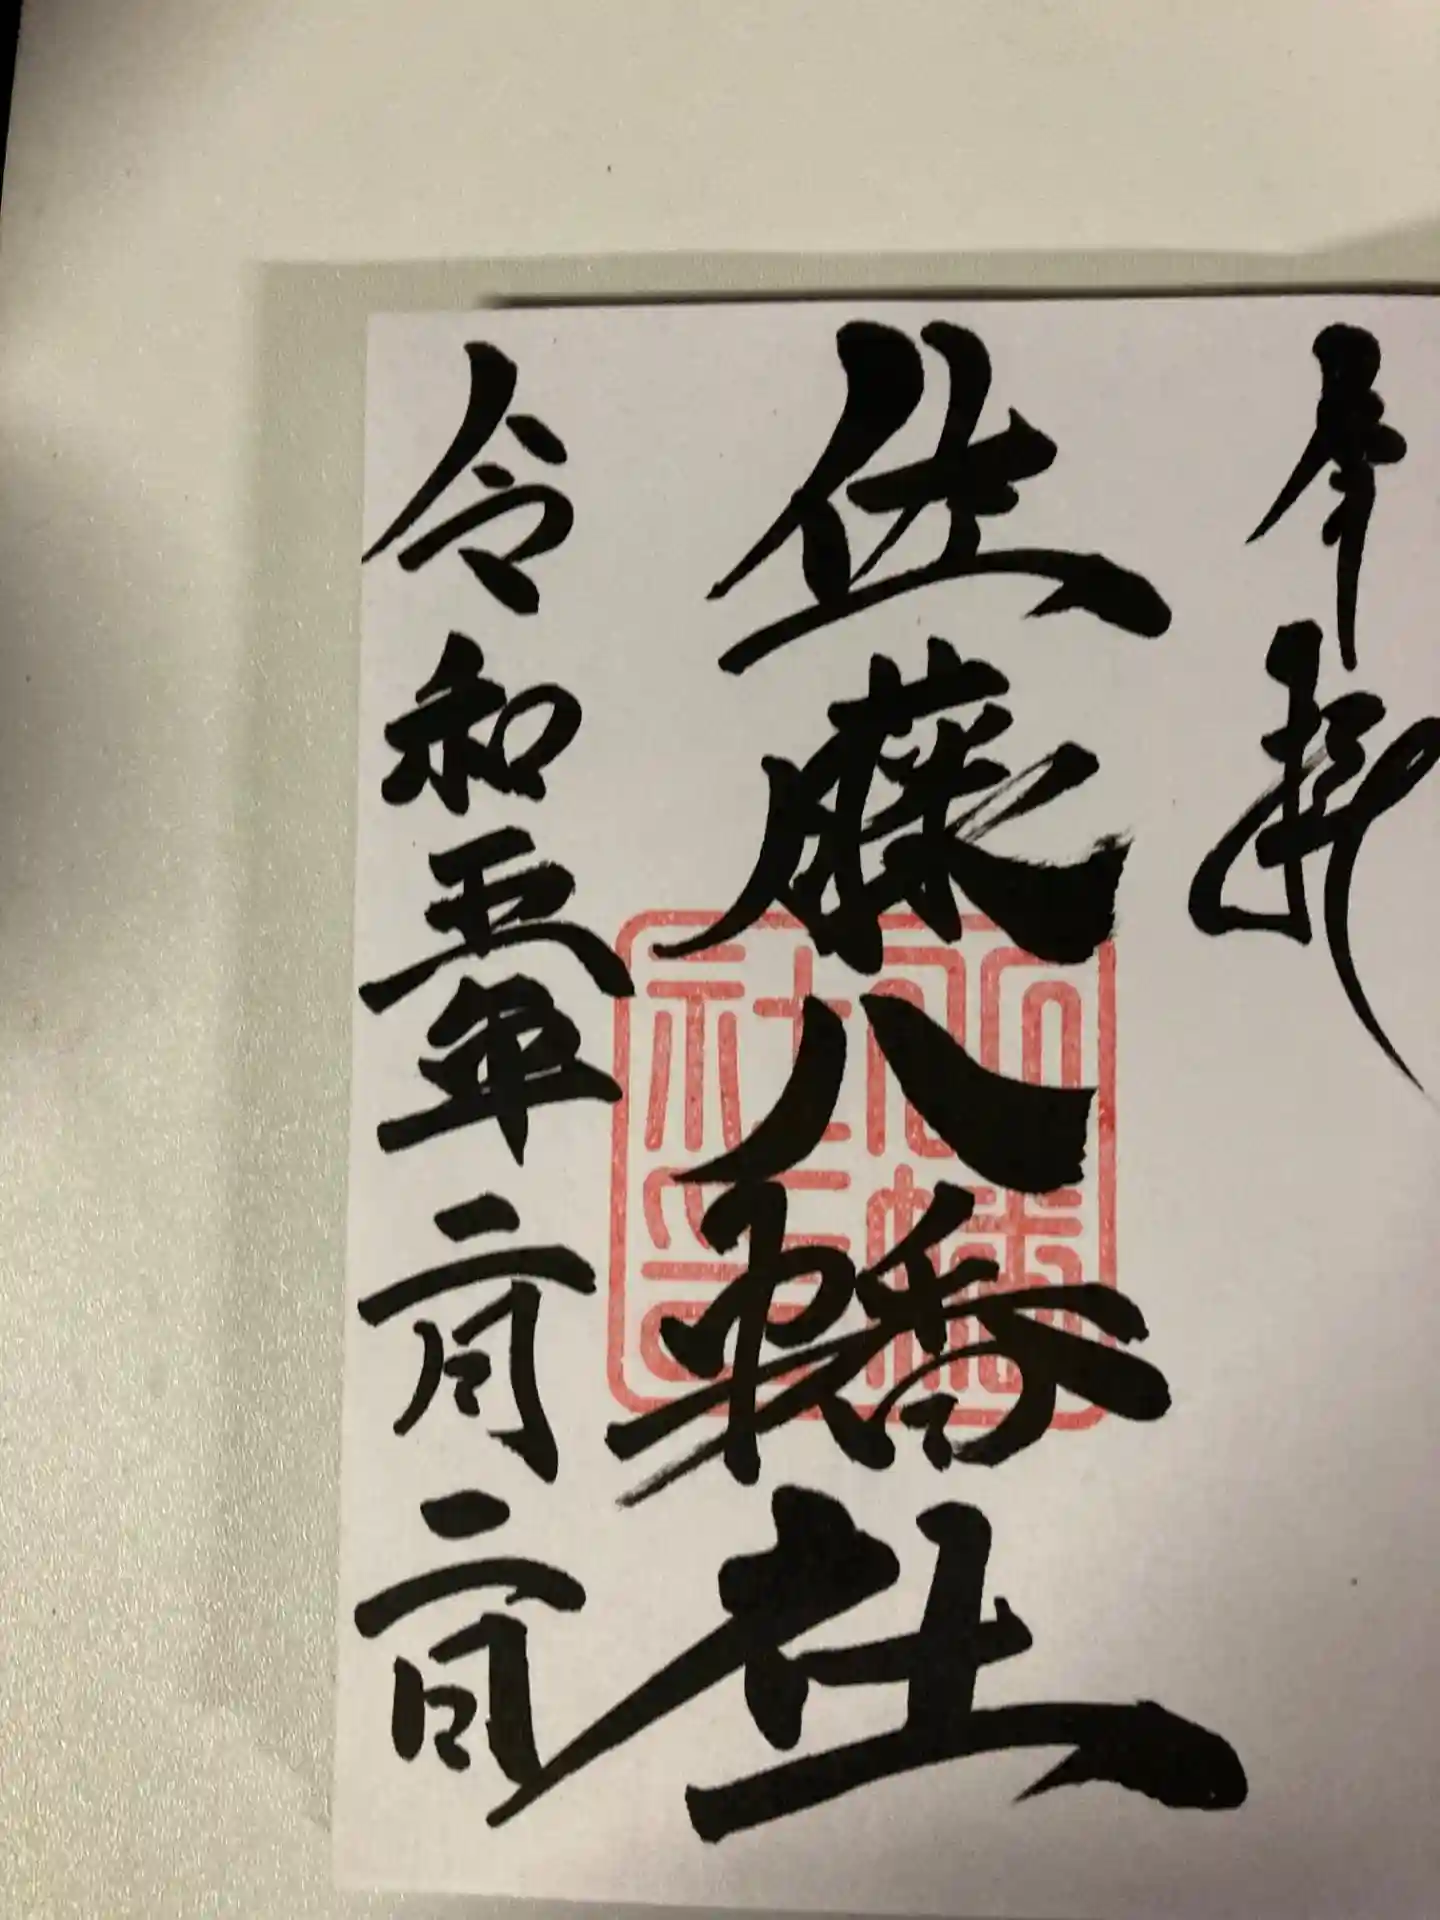 奉拝
佐藤八幡社
令和五年二月二日
八幡
社之印